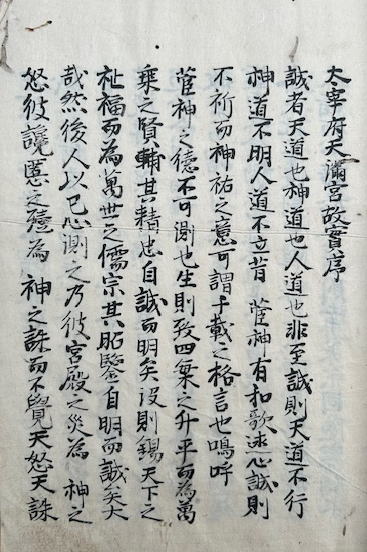 太宰府天滿宮故實序
誠者天道也神道也人道也非至誠則天道不行
神道不明人道不立昔 菅神有和歌述心誠則
不祈而神祐之意可謂千載之格言也嗚呼
菅神之德不可測也生則致四葉之升平而為萬
乘之賢輔其精忠自誠而明矣沒則錫天下之
祉福而為萬世之儒宗其昭鑒自明而誠矣大
哉然後人以己心測之乃彼宮殿之災為 神之
怒彼讒慝之殪為 神之誅而不覺天怒天誅